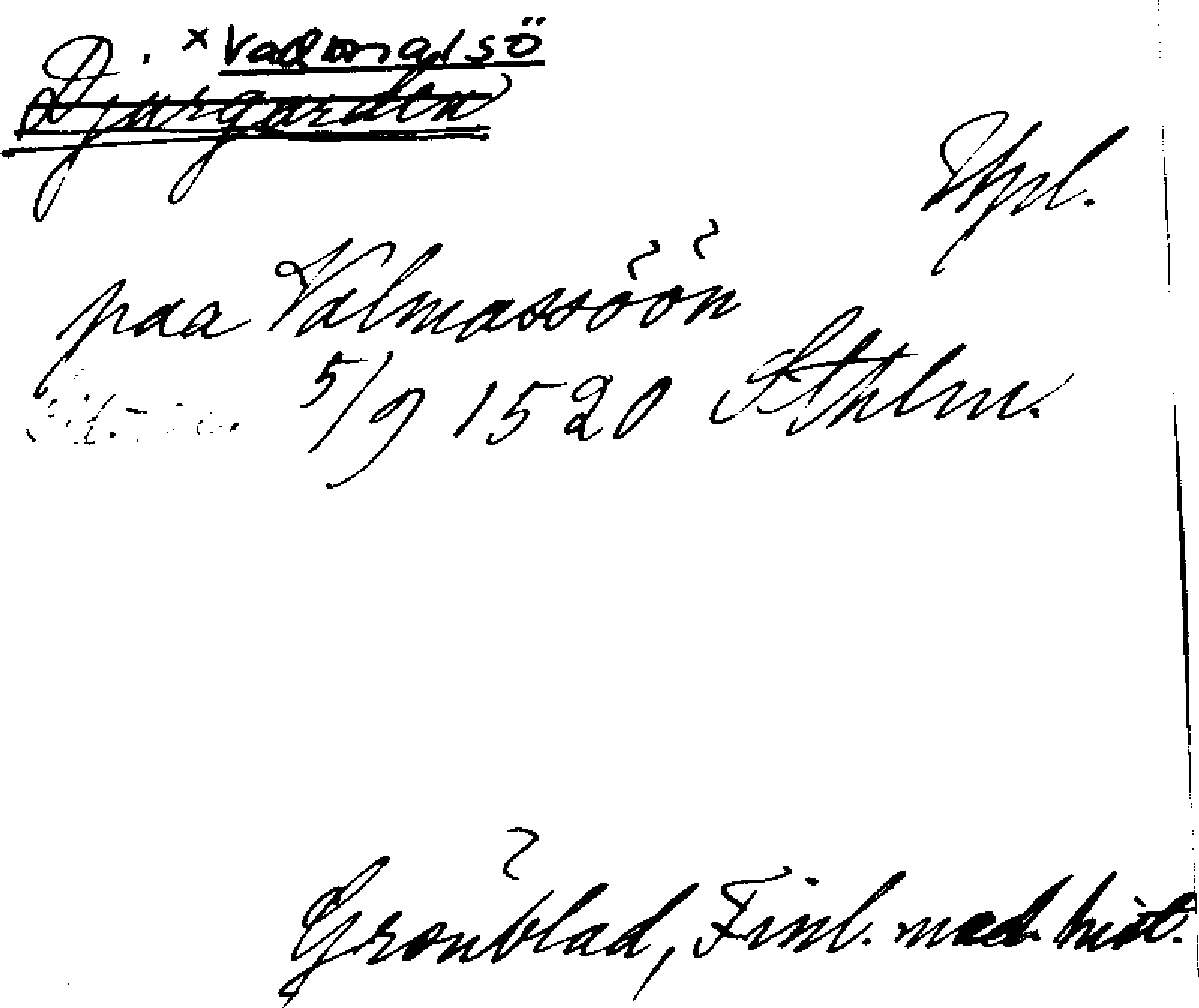 × Vadmalsö
Djurgården
Upl.
paa Valmassöön
5/9 1520 Sthlm.
Grönblad, Finl. med. hist.